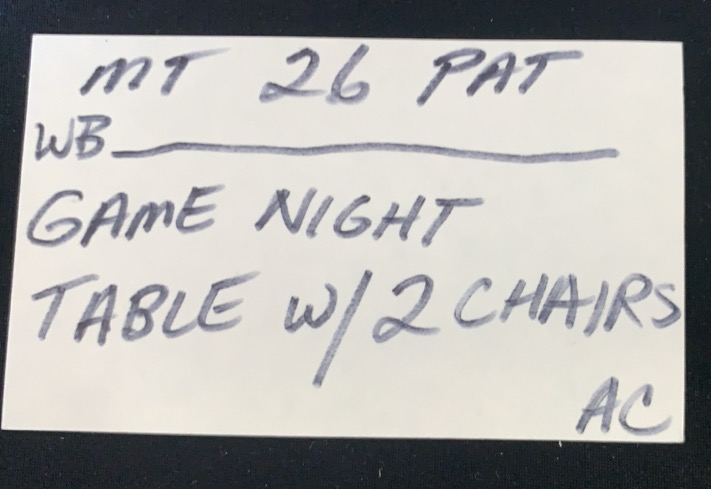 MT 26 PAT
WB
GAME NIGHT
TABLE W/2 CHAIRS
AC